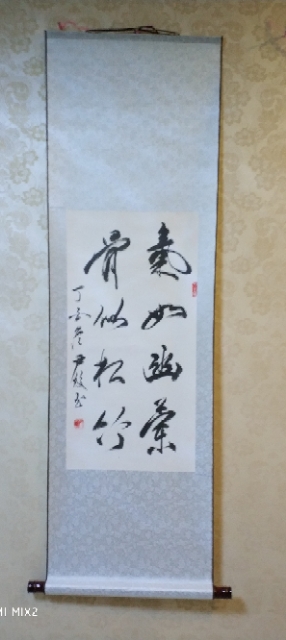 氣如幽蘭
骨似松竹
丁酉
MI MIX2